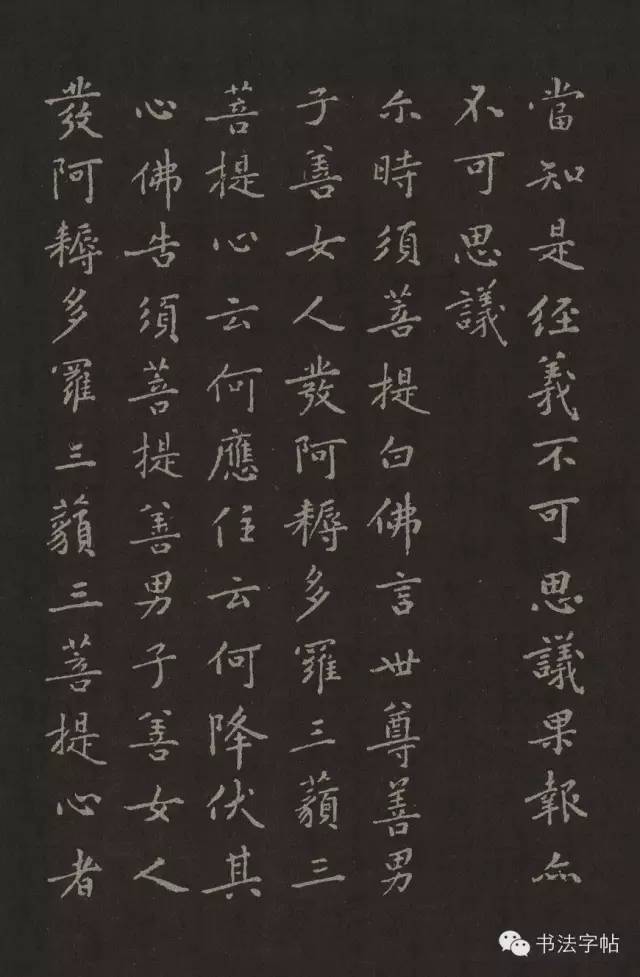 當知是经義不可思議果報亦
不可思議
尒時須菩提白佛言世尊善男
子善女人發阿耨多羅三藐三
菩提心云何應住云何降伏其
心佛告須菩提善男子善女人
發阿耨多羅三藐三菩提心者
书法字帖